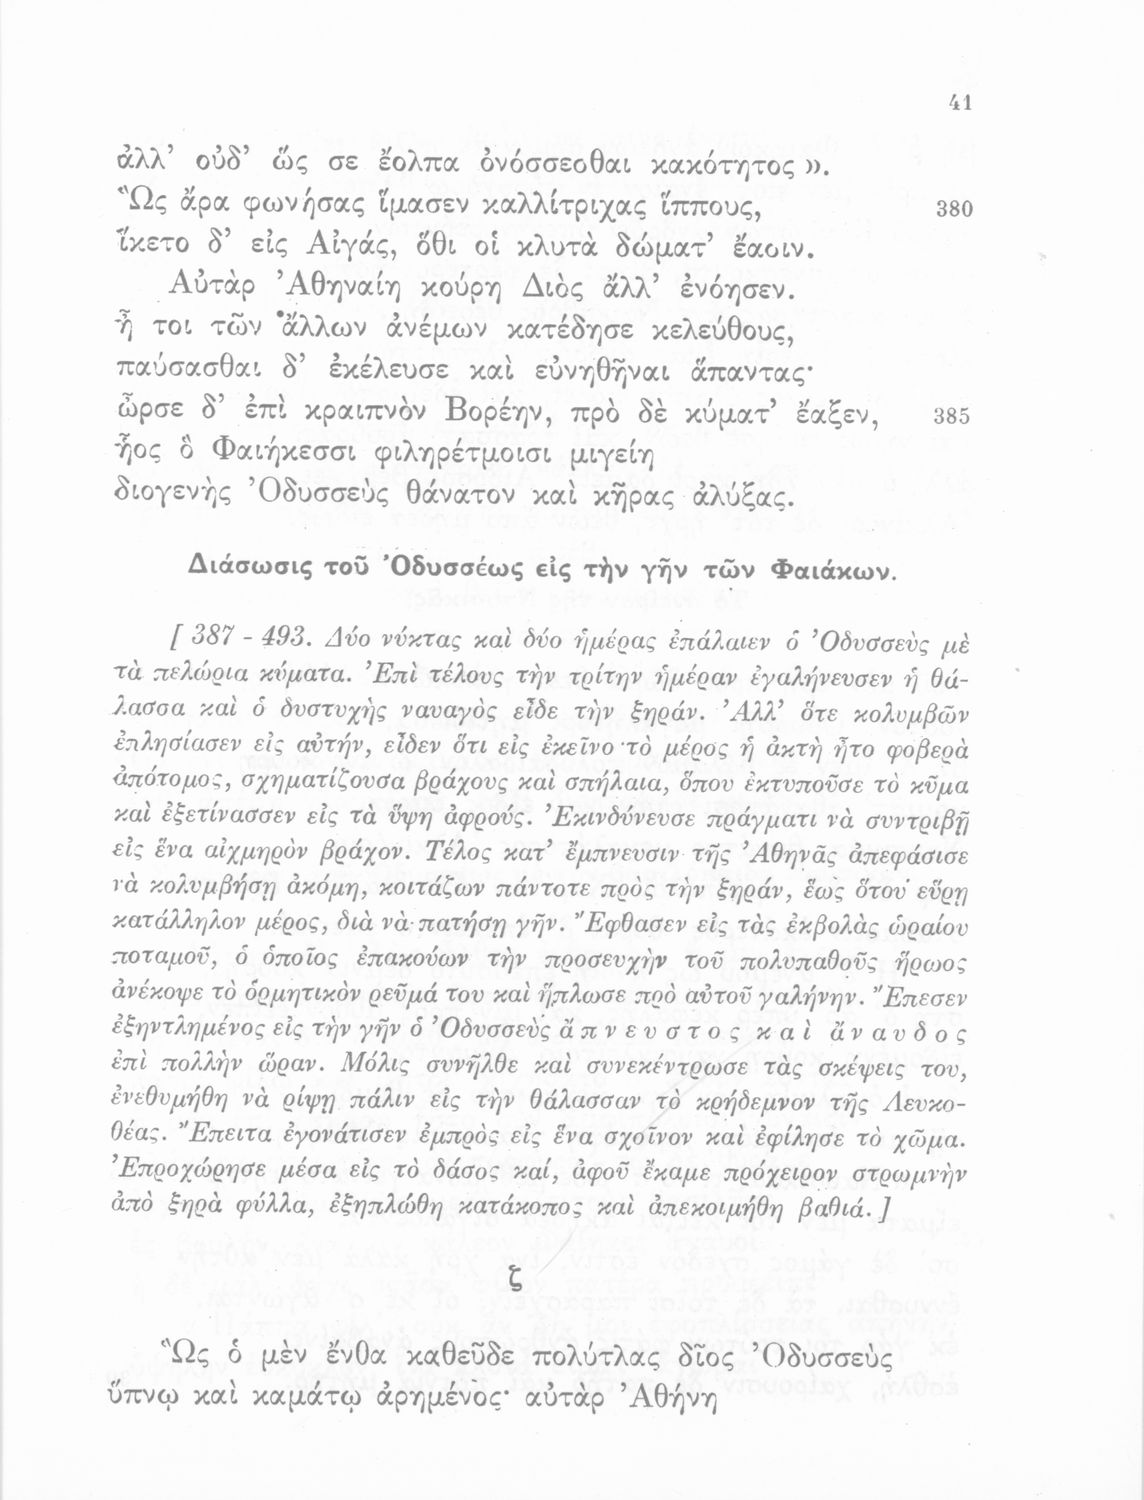 41
ἀλλ’ οὐδ’ ὥς σε ἔολπα ὀνόσσεσθαι κακότητος ».
Ὣς ἄρα φωνήσας ἵμασεν καλλίτριχας ἵππους, 380
ἵκετο δ’ εἰς Αἰγάς, ὅθι οἱ κλυτὰ δώματ’ ἔασιν.
Αὐτὰρ Ἀθηναίη κούρη Διὸς ἄλλ’ ἐνόησεν.
ἦ τοι τῶν ἄλλων ἀνέμων κατέδησε κελεύθους,
παύσασθαι δ’ ἐκέλευσε καὶ εὐνηθῆναι ἅπαντας·
ὦρσε δ’ ἐπὶ κραιπνὸν Βορέην, πρὸ δὲ κύματ’ ἔαξεν, 385
ἧος ὃ Φαιήκεσσι φιληρέτμοισι μιγείη
διογενὴς Ὀδυσσεὺς θάνατον καὶ κῆρας ἀλύξας.
Διάσωσις τοῦ Ὀδυσσέως εἰς τὴν γῆν τῶν Φαιάκων.
[ 387 - 493. Δύο νύκτας καὶ δύο ἡμέρας ἐπάλαιεν ὁ Ὀδυσσεὺς μὲ
τὰ πελώρια κύματα. Ἐπὶ τέλους τὴν τρίτην ἡμέραν ἐγαλήνευσεν ἡ θά-
λασσα καὶ ὁ δυστυχὴς ναυαγὸς εἶδε τὴν ξηράν. Ἀλλ’ ὅτε κολυμβῶν
ἐπλησίασεν εἰς αὐτήν, εἶδεν ὅτι εἰς ἐκεῖνο τὸ μέρος ἡ ἀκτὴ ἦτο φοβερὰ
ἀπότομος, σχηματίζουσα βράχους καὶ σπήλαια, ὅπου ἐκτυποῦσε τὸ κῦμα
καὶ ἐξετίνασσεν εἰς τὰ ὕψη ἀφρούς. Ἐκινδύνευσε πράγματι νὰ συντριβῇ
εἰς ἕνα αἰχμηρὸν βράχον. Τέλος κατ’ ἔμπνευσιν τῆς Ἀθηνᾶς ἀπεφάσισε
νὰ κολυμβήσῃ ἀκόμη, κοιτάζων πάντοτε πρὸς τὴν ξηράν, ἕως ὅτου εὕρῃ
κατάλληλον μέρος, διὰ νὰ πατήσῃ γῆν. Ἔφθασεν εἰς τὰς ἐκβολὰς ὡραίου
ποταμοῦ, ὁ ὁποῖος ἐπακούων τὴν προσευχὴν τοῦ πολυπαθοῦς ἥρωος
ἀνέκοψε τὸ ὁρμητικὸν ρεῦμά του καὶ ἥπλωσε πρὸ αὐτοῦ γαλήνην. Ἔπεσεν
ἐξηντλημένος εἰς τὴν γῆν ὁ Ὀδυσσεὺς ἄπνευστος καὶ ἄναυδος
ἐπὶ πολλὴν ὥραν. Μόλις συνῆλθε καὶ συνεκέντρωσε τὰς σκέψεις του,
ἐνεθυμήθη νὰ ρίψῃ πάλιν εἰς τὴν θάλασσαν τὸ κρήδεμνον τῆς Λευκο-
θέας. Ἔπειτα ἐγονάτισεν ἐμπρὸς εἰς ἕνα σχοῖνον καὶ ἐφίλησε τὸ χῶμα.
Ἐπροχώρησε μέσα εἰς τὸ δάσος καί, ἀφοῦ ἔκαμε πρόχειρον στρωμνὴν
ἀπὸ ξηρὰ φύλλα, ἐξηπλώθη κατάκοπος καὶ ἀπεκοιμήθη βαθιά. ]
ζ
Ὣς ὁ μὲν ἔνθα καθεῦδε πολύτλας δῖος Ὀδυσσεὺς
ὕπνῳ καὶ καμάτῳ ἀρημένος· αὐτὰρ Ἀθήνη